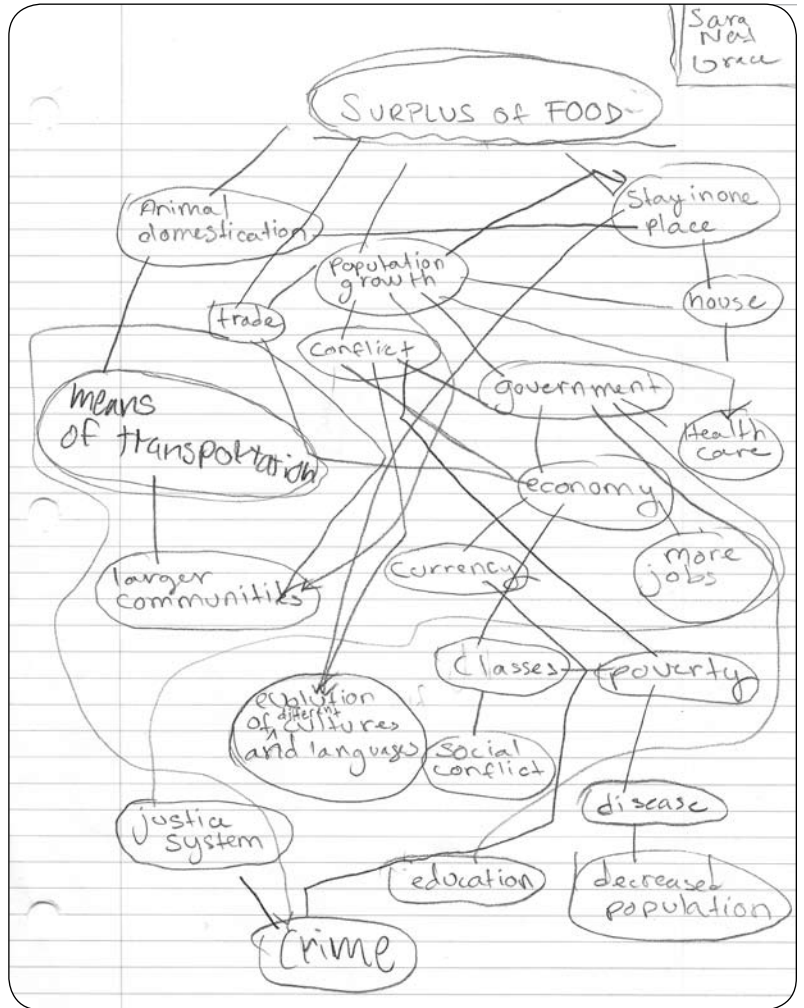 Sara
Nat
Grace
SURPLUS OF FOOD
Animal
domestication
Stay in one
place
population
growth
house
trade
conflict
government
means
of transportation
Health
care
economy
currency
more
jobs
larger
communities
classes
poverty
evolution
of different cultures
and languages
social
conflict
disease
justice
system
education
decreased
population
Crime